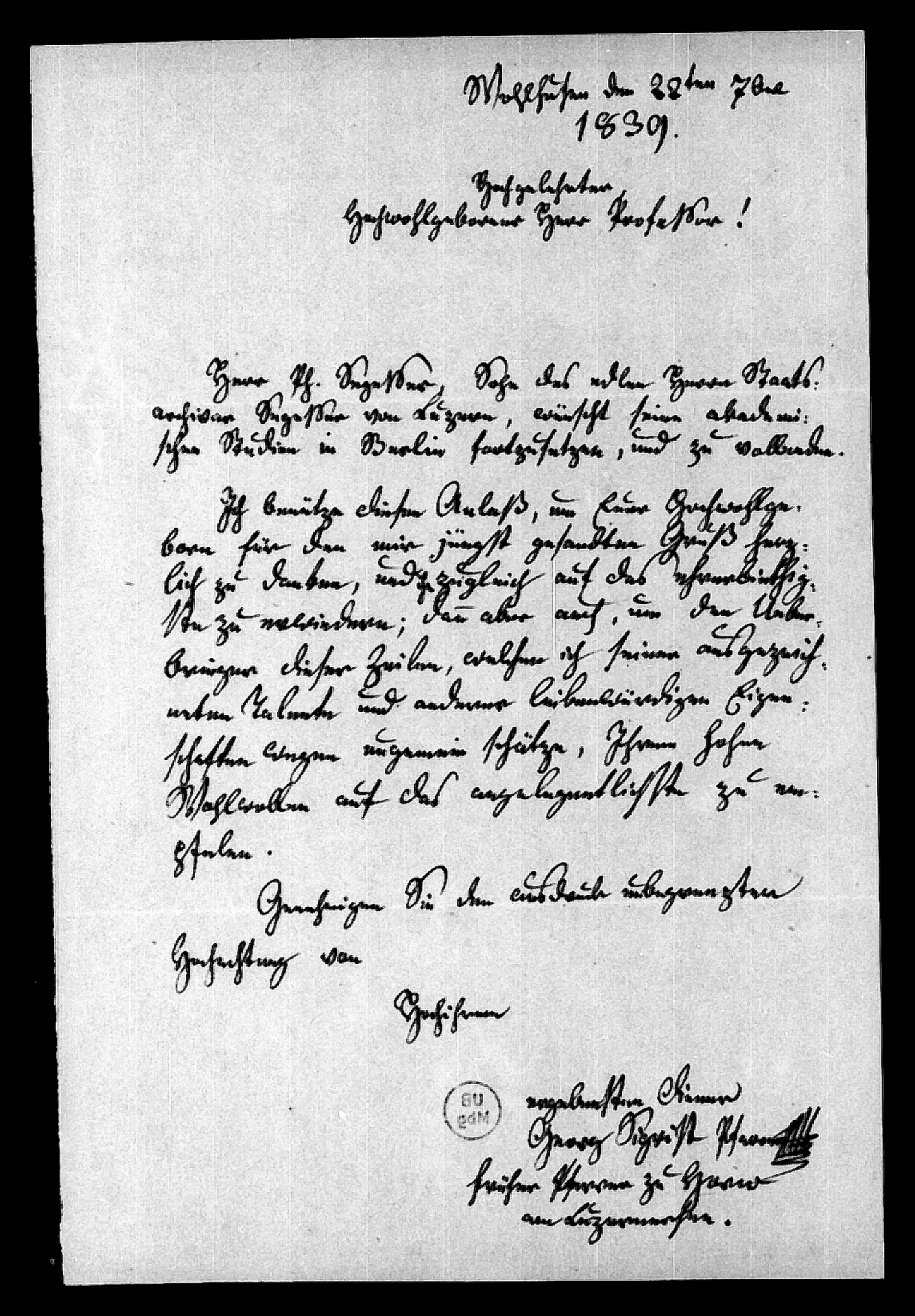 Wohlhusen den 22ten 7ber
1839.
Hochgelehrter,
Hochwohlgeborner Herr Professor!
Herr Ph. Segesser, Sohn des edlen Herrn Staats:
archivar Segesser von Luzern, wünscht seine akademi:
schen Studien in Berlin fortzusetzen, und zu vollenden.
Ich benütze diesen Anlaß, um Euer Hochwohlge:
born für den mir jüngst gesandten Gruß herz:
lich zu danken, und zugleich auf das ehrerbiethig:
ste zu erwiedern; dann aber auch, um den Ueber:
bringer dieser Zeilen, welchen ich seiner ausgezeich:
neten Talente und anderer liebenwürdigen Eigen:
schaften wegen ungemein schätze, Ihrem hohen
Wohlwollen auf das angelegentlichste zu em:
pfelen.
Genehmigen Sie den Ausdruck unbegrenzten
Hochachtung von
Hochihrem
ergebensten Diener
Georg Sigrist Pfarrer
früher Pfarrer zu Horw
am Luzernersee.
UB
Mbg